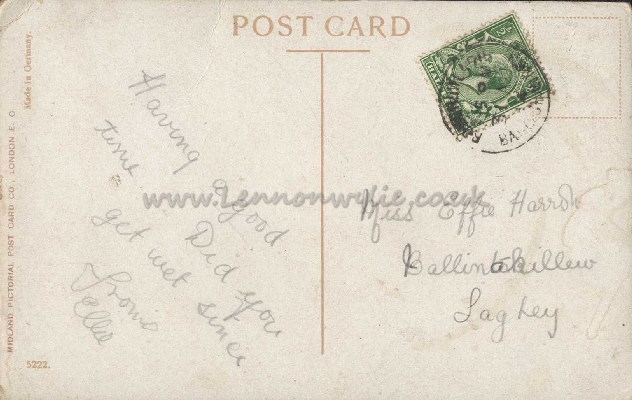 POST CARD
Made in Germany.
MIDLAND PICTORIAL POST CARD CO., LONDON E. C
5222.
Having a good
time. Did you
get wet since
From
Ellie
www.Lennonwylie.co.uk
Miss Effie Harron
Laghey